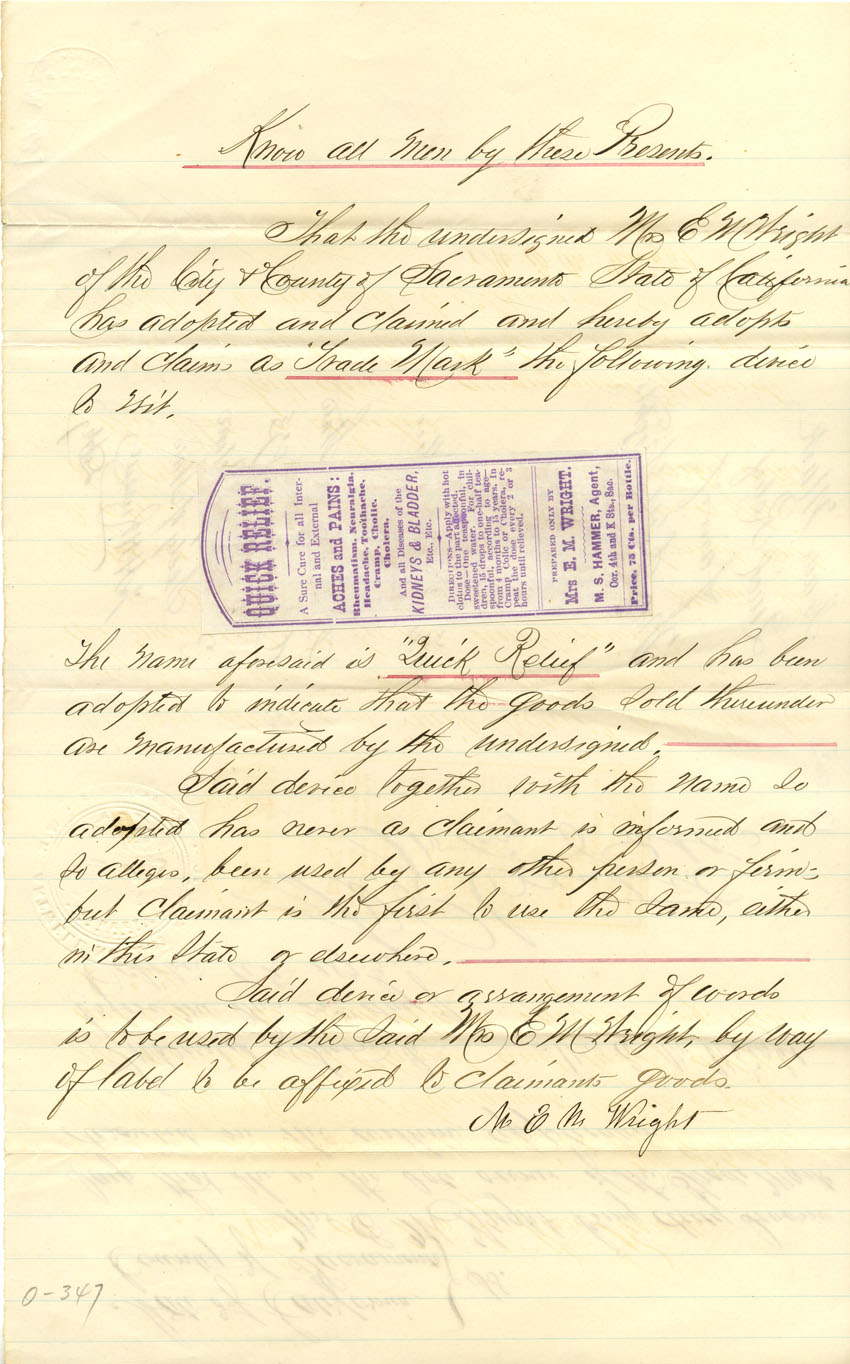 Know all Men by these Presents.
That the undersigned Mrs E M Wright
of the City & County of Sacramento State of California
has adopted and claimed and hereby adopts
and claims as "Trade Mark" the following device
to wit.
QUICK RELIEF.
A Sure Cure for all Inter-
nal and External
ACHES and PAINS:
Rheumatism, Neuralgia,
Headache, Toothache,
Cramp, Cholic,
Cholera,
And all Diseases of the
KIDNEYS & BLADDER,
Etc., Etc.
DIRECTIONS—Apply with hot
cloths to the part affected.
Dose—One teaspoonful, in
sweetened water. For chil-
dren, 15 drops to one-half tea-
spoonful, according to age—
from 4 months to 15 years. In
Cramp Colic or Cholera, re-
peat the dose every 2 or 3
hours until relieved.
PREPARED ONLY BY
Mrs E. M. WRIGHT.
M. S. HAMMER, Agent,
Cor. 4th and K Sts., Sac.
Price, 75 Cts. per Bottle.
The Name aforesaid is "Quick Relief" and has been
adopted to indicate that the goods sold thereunder
are manufactured by the undersigned.
Said device together with the Name so
adopted has never as claimant is informed and
so alleges, been used by any other person or firm-
but Claimant is the first to use the same, either
in this State or elsewhere.
Said device or arrangement of words
is to be used by the said Mrs E M Wright, by way
of label to be affixed to claimants goods.
M E M Wright
0-347